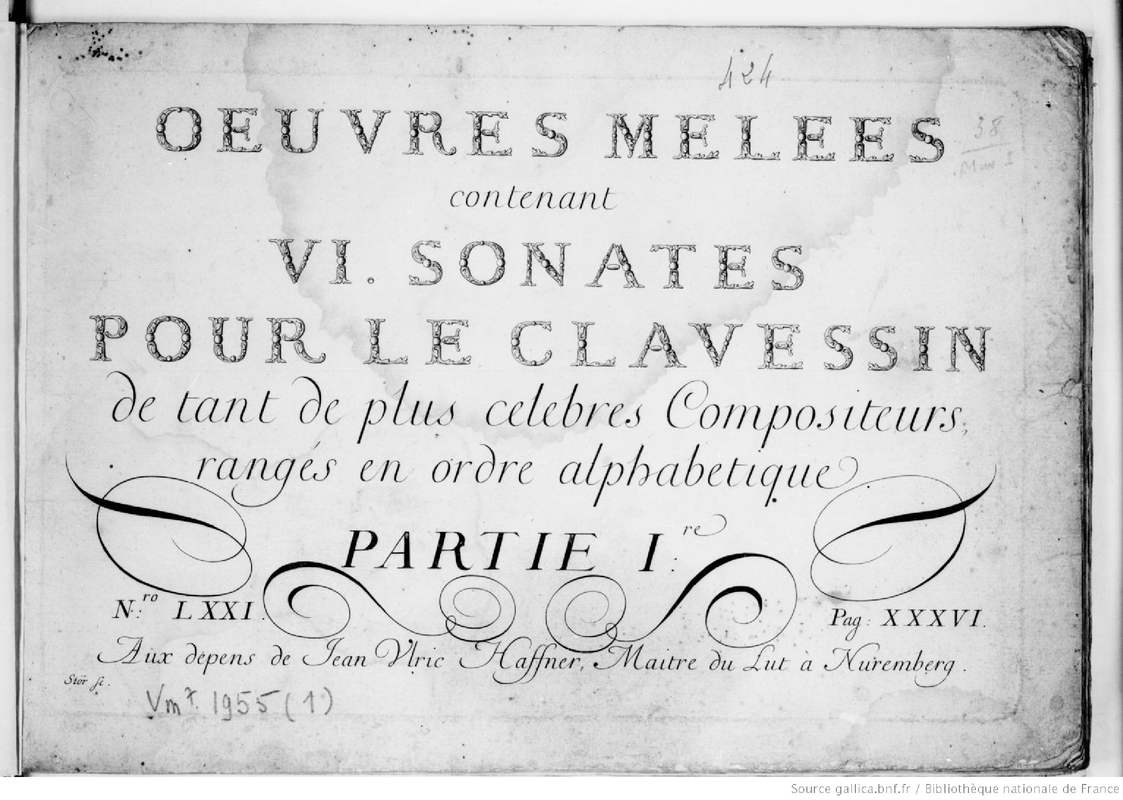 424
OEUVRES MELEES
38
contenant
VI. SONATES
POUR LE CLAVESSIN
de tant de plus celebres Compositeurs,
rangés en ordre alphabetique
PARTIE I.re
N.ro LXXI.
Pag: XXXVI.
Aux depens de Jean Ulric Haffner, Maitre du Lut à Nuremberg.
Stör sc.
Vm7. 1955 (1)
Source gallica.bnf.fr / Bibliothèque nationale de France